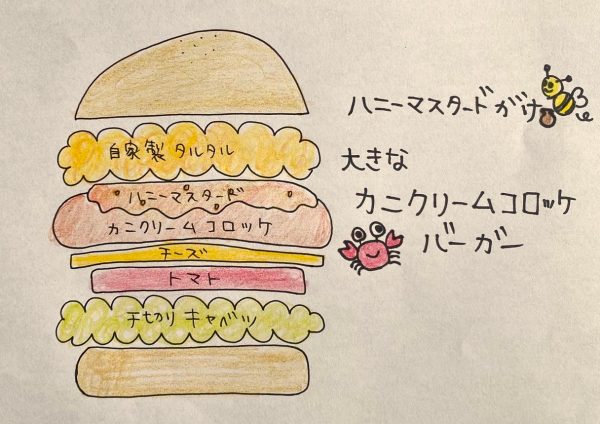 ハニーマスタードがけ
大きな
カニクリームコロッケ
バーガー
自家製 タルタル
ハニーマスタード
カニクリームコロッケ
チーズ
トマト
千切りキャベツ